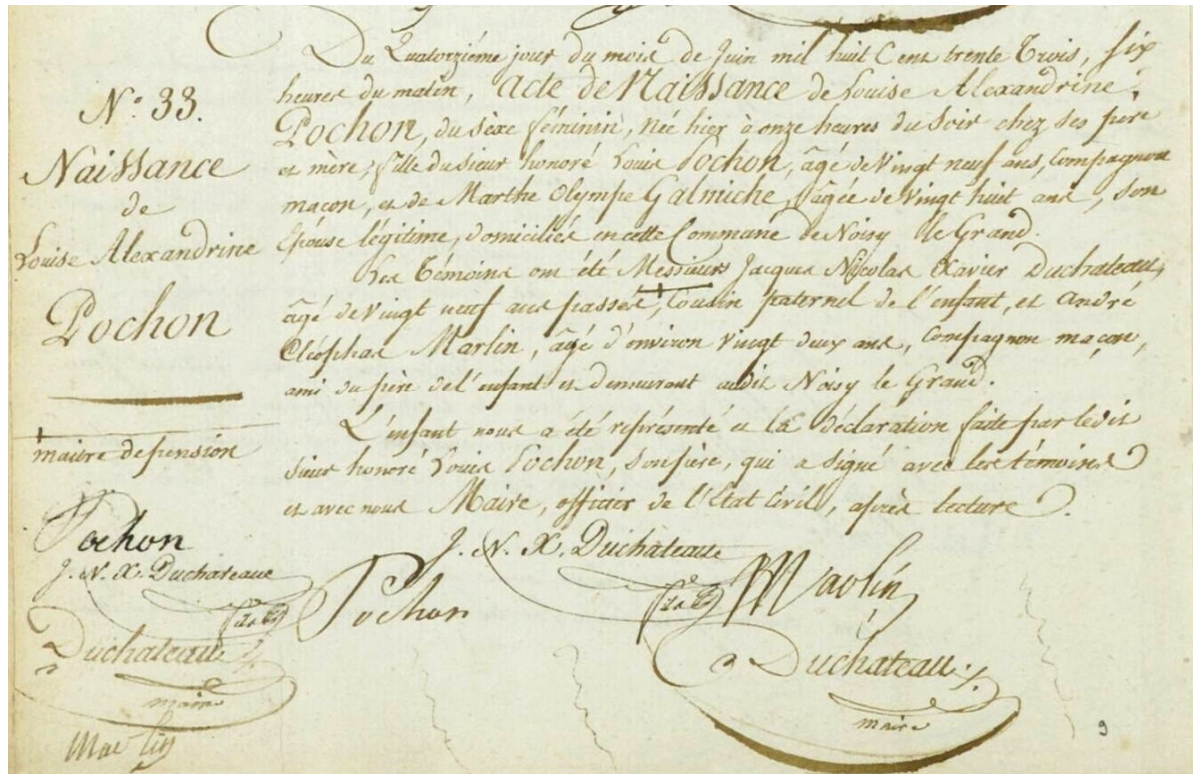 N.° 33.
Naissance
de
Louise Alexandrine
Pochon
maitre de pension
Pochon
J. N. X. Duchateau
Duchateau
maire
Marlin
Du Quatorzième jour du mois de Juin mil huit Cent trente Trois, six
heures du matin, Acte de Naissance de Louise Alexandrine
Pochon, du sèxe féminin, Née hier à onze heures du Soir chez ses père
et mère, fille du sieur honoré Louis Pochon, âgé de Vingt neuf ans, Compagnon
maçon, et de Marthe Olympe Galmiche, âgée de Vingt huit ans, son
Épouse légitime, domiciliés en cette Commune de Noisy le Grand.
Les Témoins ont été Messieurs Jacques Nicolas Xavier Duchateau,
âgé de Vingt neuf ans passés, Cousin paternel de l'enfant, et André
Cléophas Marlin, âgé d'environ Vingt deux ans, Compagnon maçon,
ami du père de l'enfant et demeurant audit Noisy le Grand.
L'enfant nous a été représenté et la déclaration faite par ledit
sieur honoré Louis Pochon, son père, qui a signé avec les témoins
et avec nous Maire, officier de l'État Civil, après lecture.
J. N. X. Duchateau
Pochon
Marlin
Duchateau
maire
9